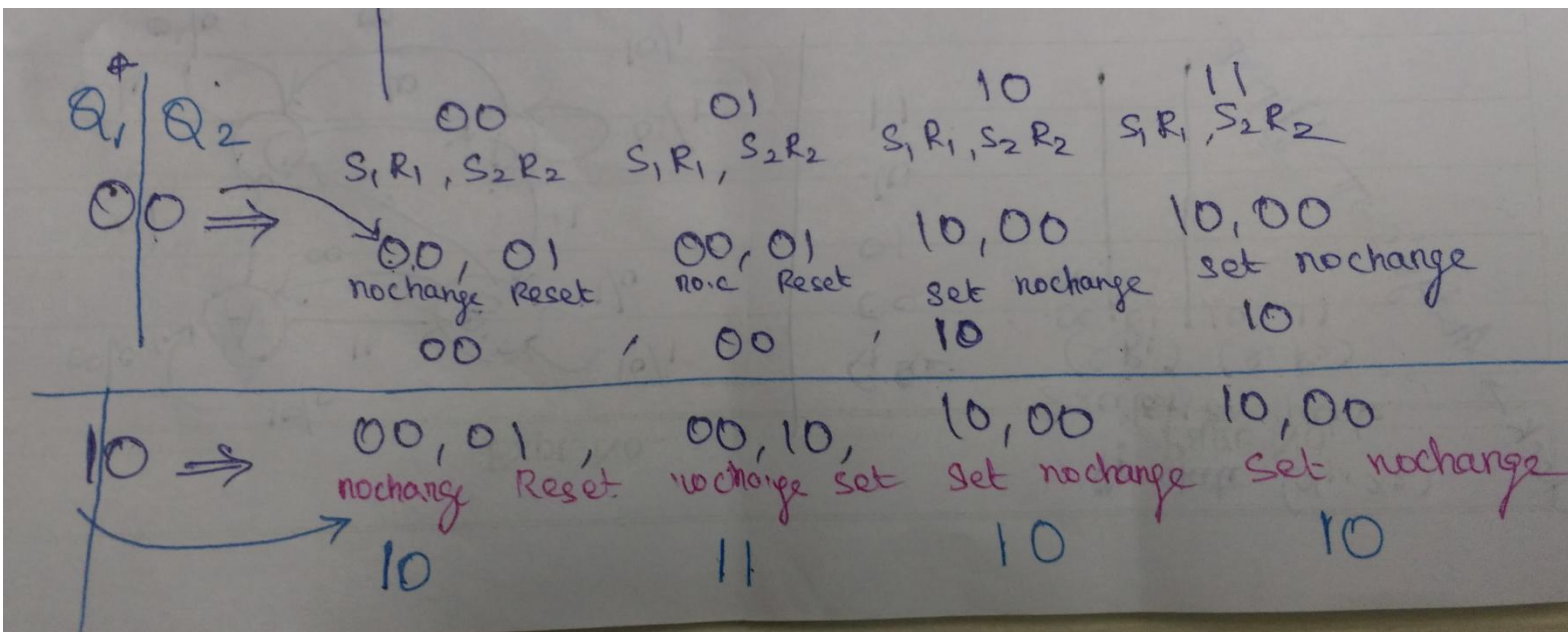 +
Q₁ | Q₂ 00 01 10 11
S₁R₁, S₂R₂ S₁R₁, S₂R₂ S₁R₁, S₂R₂ S₁R₁, S₂R₂
00 ⇒ 00, 01 00, 01 10,00 10,00
nochange Reset no.c Reset set nochange set nochange
00 , 00 , 10 10
10 ⇒ 00, 01, 00, 10, 10,00 10,00
nochange Reset nochange set set nochange set nochange
10 11 10 10